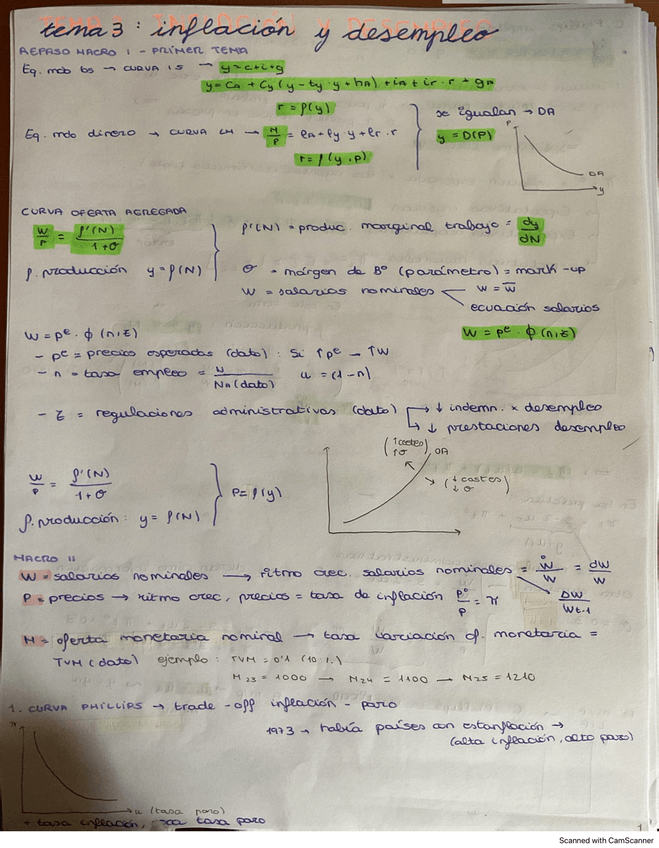 tema 3: inflación y desempleo
REPASO MACRO I - PRIMER TEMA
Eq. mdo bs → CURVA IS → y=c+i+g
y = CA + Cy (y - ty · y + hA) + iA + ir · r + gA
r = f(y)
Eq. mdo dinero → CURVA LM → M/P = lA + ly y + lr · r
r = f(y, p)
se igualan → DA
y = D(P)
P
DA
y
CURVA OFERTA AGREGADA
W/P = f'(N)/1+σ
f. producción y = f(N)
f'(N) = produc. marginal trabajo = dy/dN
σ = márgen de Bº (parámetro) = mark-up
W = salarios nominales
W = W̅
ecuación salarios
W = pe · ϕ (n, z)
W = pe · ϕ (n, z)
- pe = precios esperados (dato): Si ↑pe → ↑W
- n = tasa empleo = N/Nn (dato) u = (1-n)
- z = regulaciones administrativas (dato)
↓ indemn. x desempleo
↓ prestaciones desempleo
W/P = f'(N)/1+σ
f. producción: y = f(N)
P = f(y)
(↑costes ↑σ)
OA
(↓costes ↓σ)
MACRO II
W = salarios nominales → ritmo crec. salarios nominales = Ẇ/W = dW/W
ΔW/Wt-1
P = precios → ritmo crec. precios = tasa de inflación Ṗ/P = π
M = oferta monetaria nominal → tasa variación of. monetaria =
TVM (dato) ejemplo: TVM = 0'1 (10%)
M23 = 1000 → M24 = 1100 → M25 = 1210
1. CURVA PHILLIPS → trade-off inflación - paro
1973 → había países con estanflación →
(alta inflación, alto paro)
π
u (tasa paro)
+ tasa inflación, tasa paro
1
Scanned with CamScanner